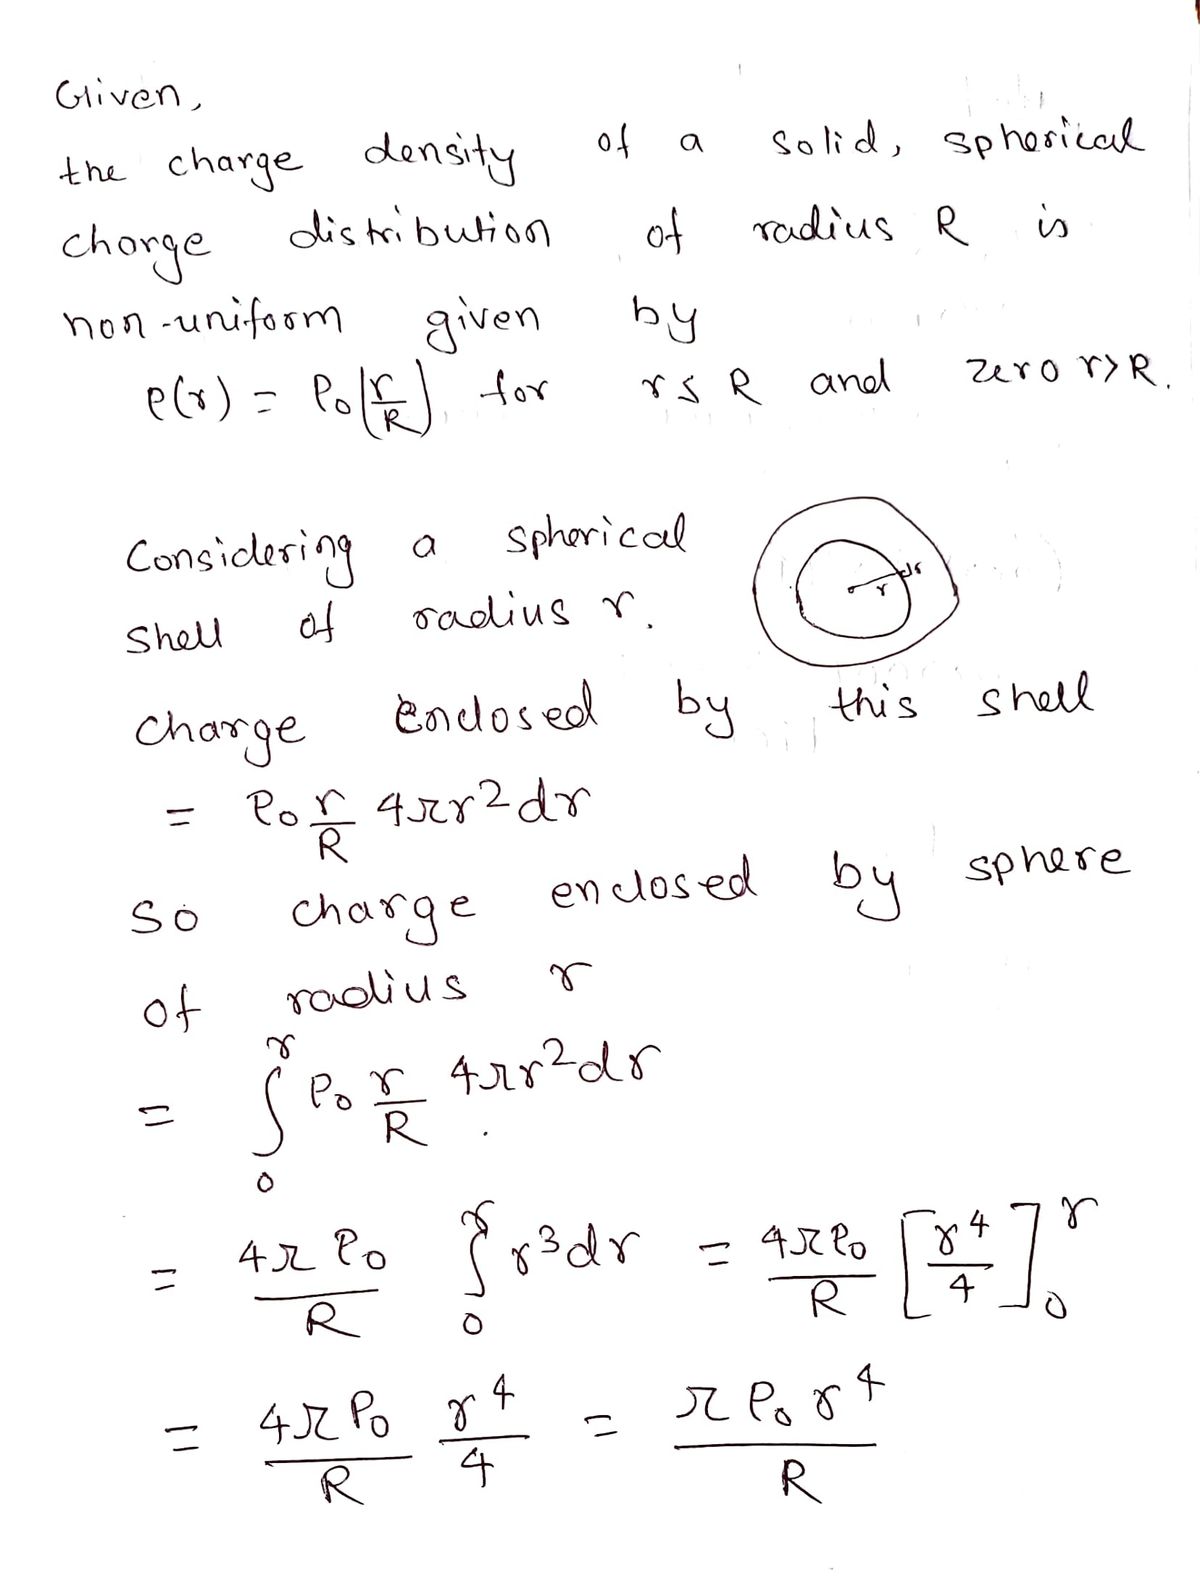 Given,
the charge density of a solid, spherical
charge distribution of radius R is
non-uniform given by
ρ(r) = ρ₀(r/R) for r≤R and zero r>R.
Considering a spherical
shell of radius r.
r dr
charge enclosed by this shell
= ρ₀ r/R 4πr²dr
So charge enclosed by sphere
of radius r
= ∫₀^r ρ₀ r/R 4πr²dr
= 4πρ₀/R ∫₀^r r³dr = 4πρ₀/R [r⁴/4]₀^r
= 4πρ₀/R r⁴/4 = πρ₀r⁴/R